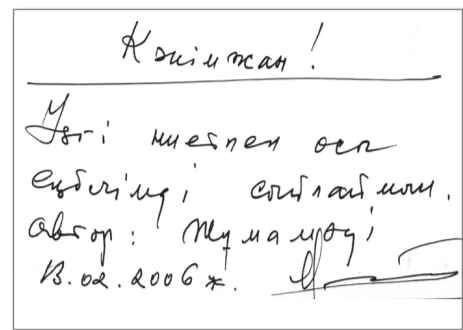 Кәкімжан!
Ізгі ниетпен осы
еңбегімді сыйлаймын.
Автор:
13.02.2006 ж.